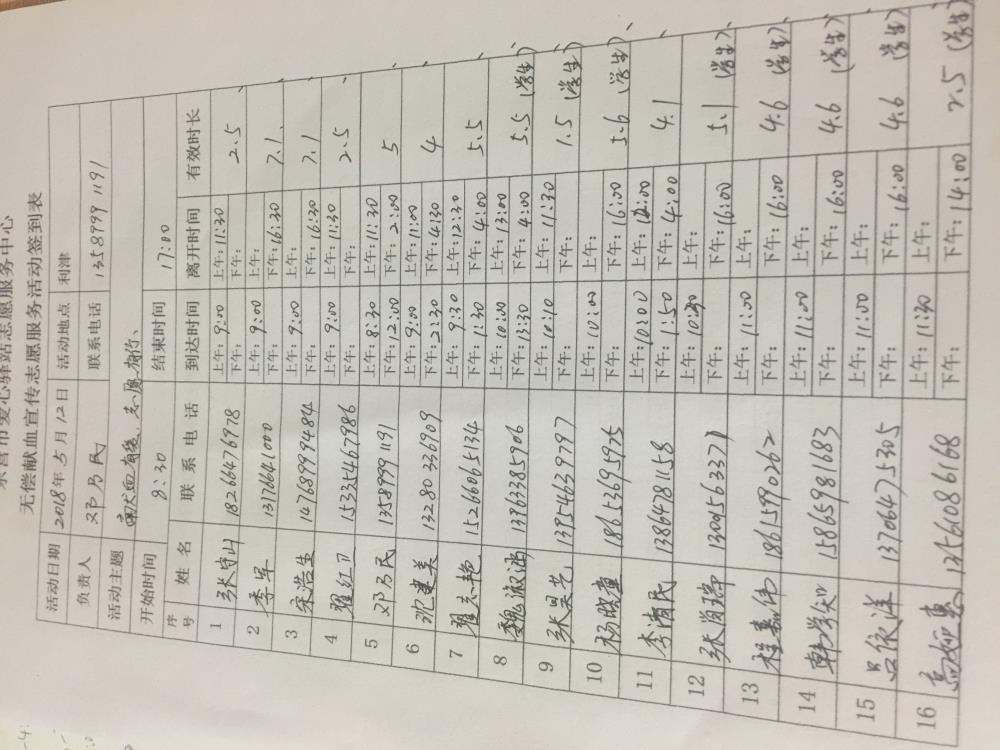 东营市爱心驿站志愿服务中心
无偿献血宣传志愿服务活动签到表
活动日期 2018年5月12日 活动地点 利津
负责人 邓乃民 联系电话 13589991191
活动主题 献血有缘、志愿有行、
开始时间 8:30 结束时间 17:00
序号 姓名 联系电话 到达时间 离开时间 有效时长
1 张守山 18266476978 上午: 9:00 下午: 上午: 11:30 下午: 2.5
2 李军 13176641000 上午: 9:00 下午: 上午: 下午: 16:30 7.1
3 宋浩生 14768999484 上午: 9:00 下午: 上午: 下午: 16:30 7.1
4 翟红卫 15335467986 上午: 9:00 下午: 上午: 11:30 下午: 2.5
5 邓乃民 13589991191 上午: 8:30 下午: 12:00 上午: 11:30 下午: 2:00 5
6 沈建美 13280336909 上午: 9:00 下午: 2:30 上午: 11:00 下午: 4:30 4
7 翟志艳 15266065134 上午: 9:30 下午: 1:30 上午: 12:30 下午: 4:00 5.5
8 魏淑涵 13863385906 上午: 10:00 下午: 13:30 上午: 13:00 下午: 4:00 5.5 (学生)
9 张昊艺 13954639797 上午: 10:10 下午: 上午: 11:30 下午: 1.5 (学生)
10 杨晓萱 18653695975 上午: 10:00 下午: 上午: 下午: 16:00 5.6 (学生)
11 李清民 13864781158 上午: 10:00 下午: 1:50 上午: 12:00 下午: 4:00 4.1
12 张肖瑞 13009563371 上午: 10:30 下午: 上午: 下午: 16:00 5.1 (学生)
13 程嘉伟 18615990262 上午: 11:00 下午: 上午: 下午: 16:00 4.6 (学生)
14 韩学知 15865981683 上午: 11:00 下午: 上午: 下午: 16:00 4.6 (学生)
15 吕欣洋 13706475305 上午: 11:00 下午: 上午: 下午: 16:00 4.6 (学生)
16 高姬惠 13561086168 上午: 11:30 下午: 上午: 下午: 14:00 2.5 (学生)